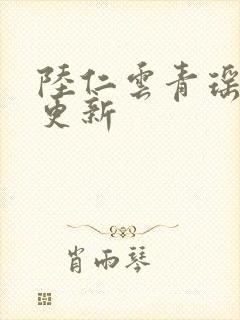 陸仁雲青瑶
更新
肖雨琴